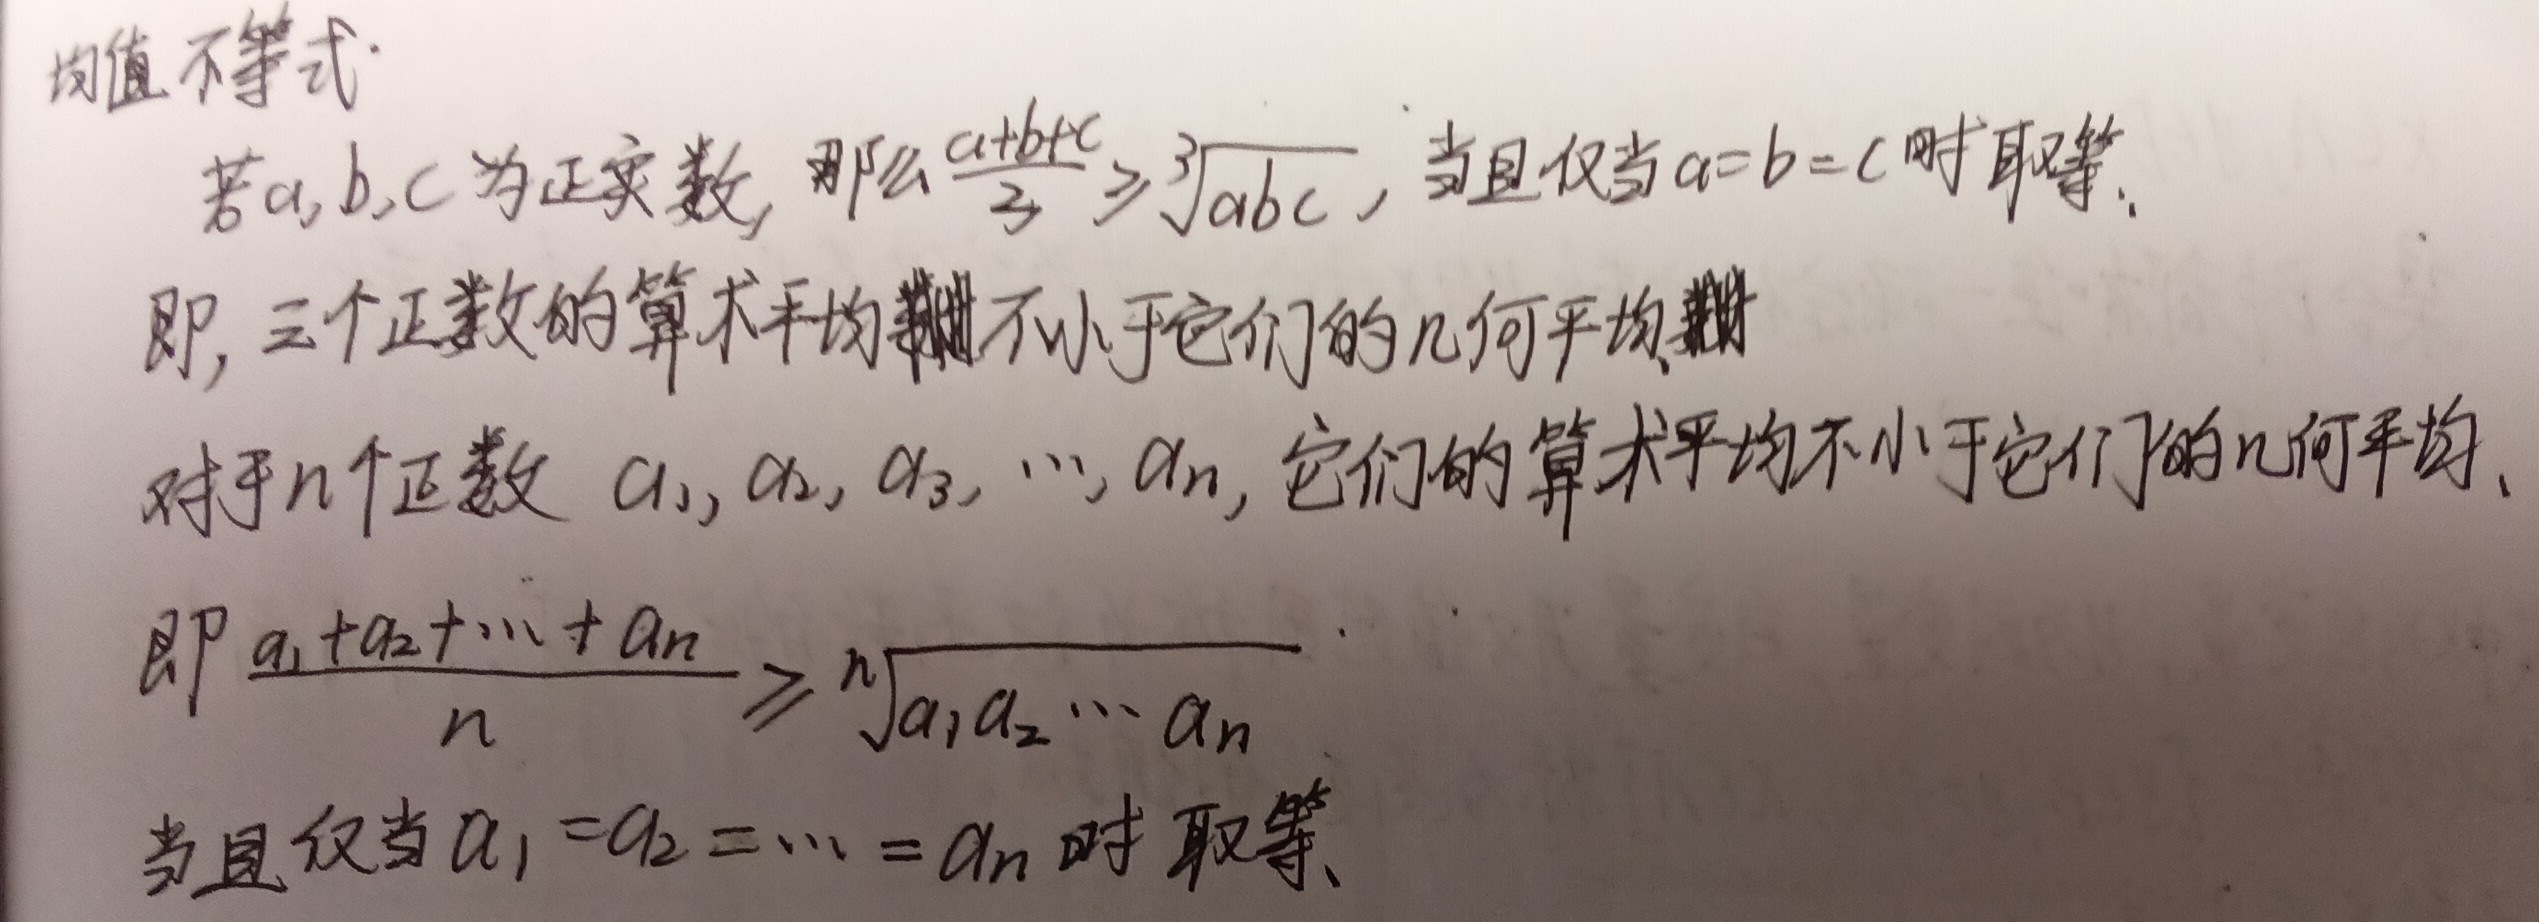 均值不等式.
若a,b,c为正实数,那么$\frac{a+b+c}{3} \geqslant \sqrt[3]{abc}$,当且仅当a=b=c时取等.
即,三个正数的算术平均不小于它们的几何平均.
对于n个正数 $a_1, a_2, a_3, \cdots, a_n$,它们的算术平均不小于它们的几何平均.
即$\frac{a_1+a_2+\cdots+a_n}{n} \geqslant \sqrt[n]{a_1a_2\cdots a_n}$
当且仅当$a_1=a_2=\cdots=a_n$时取等.